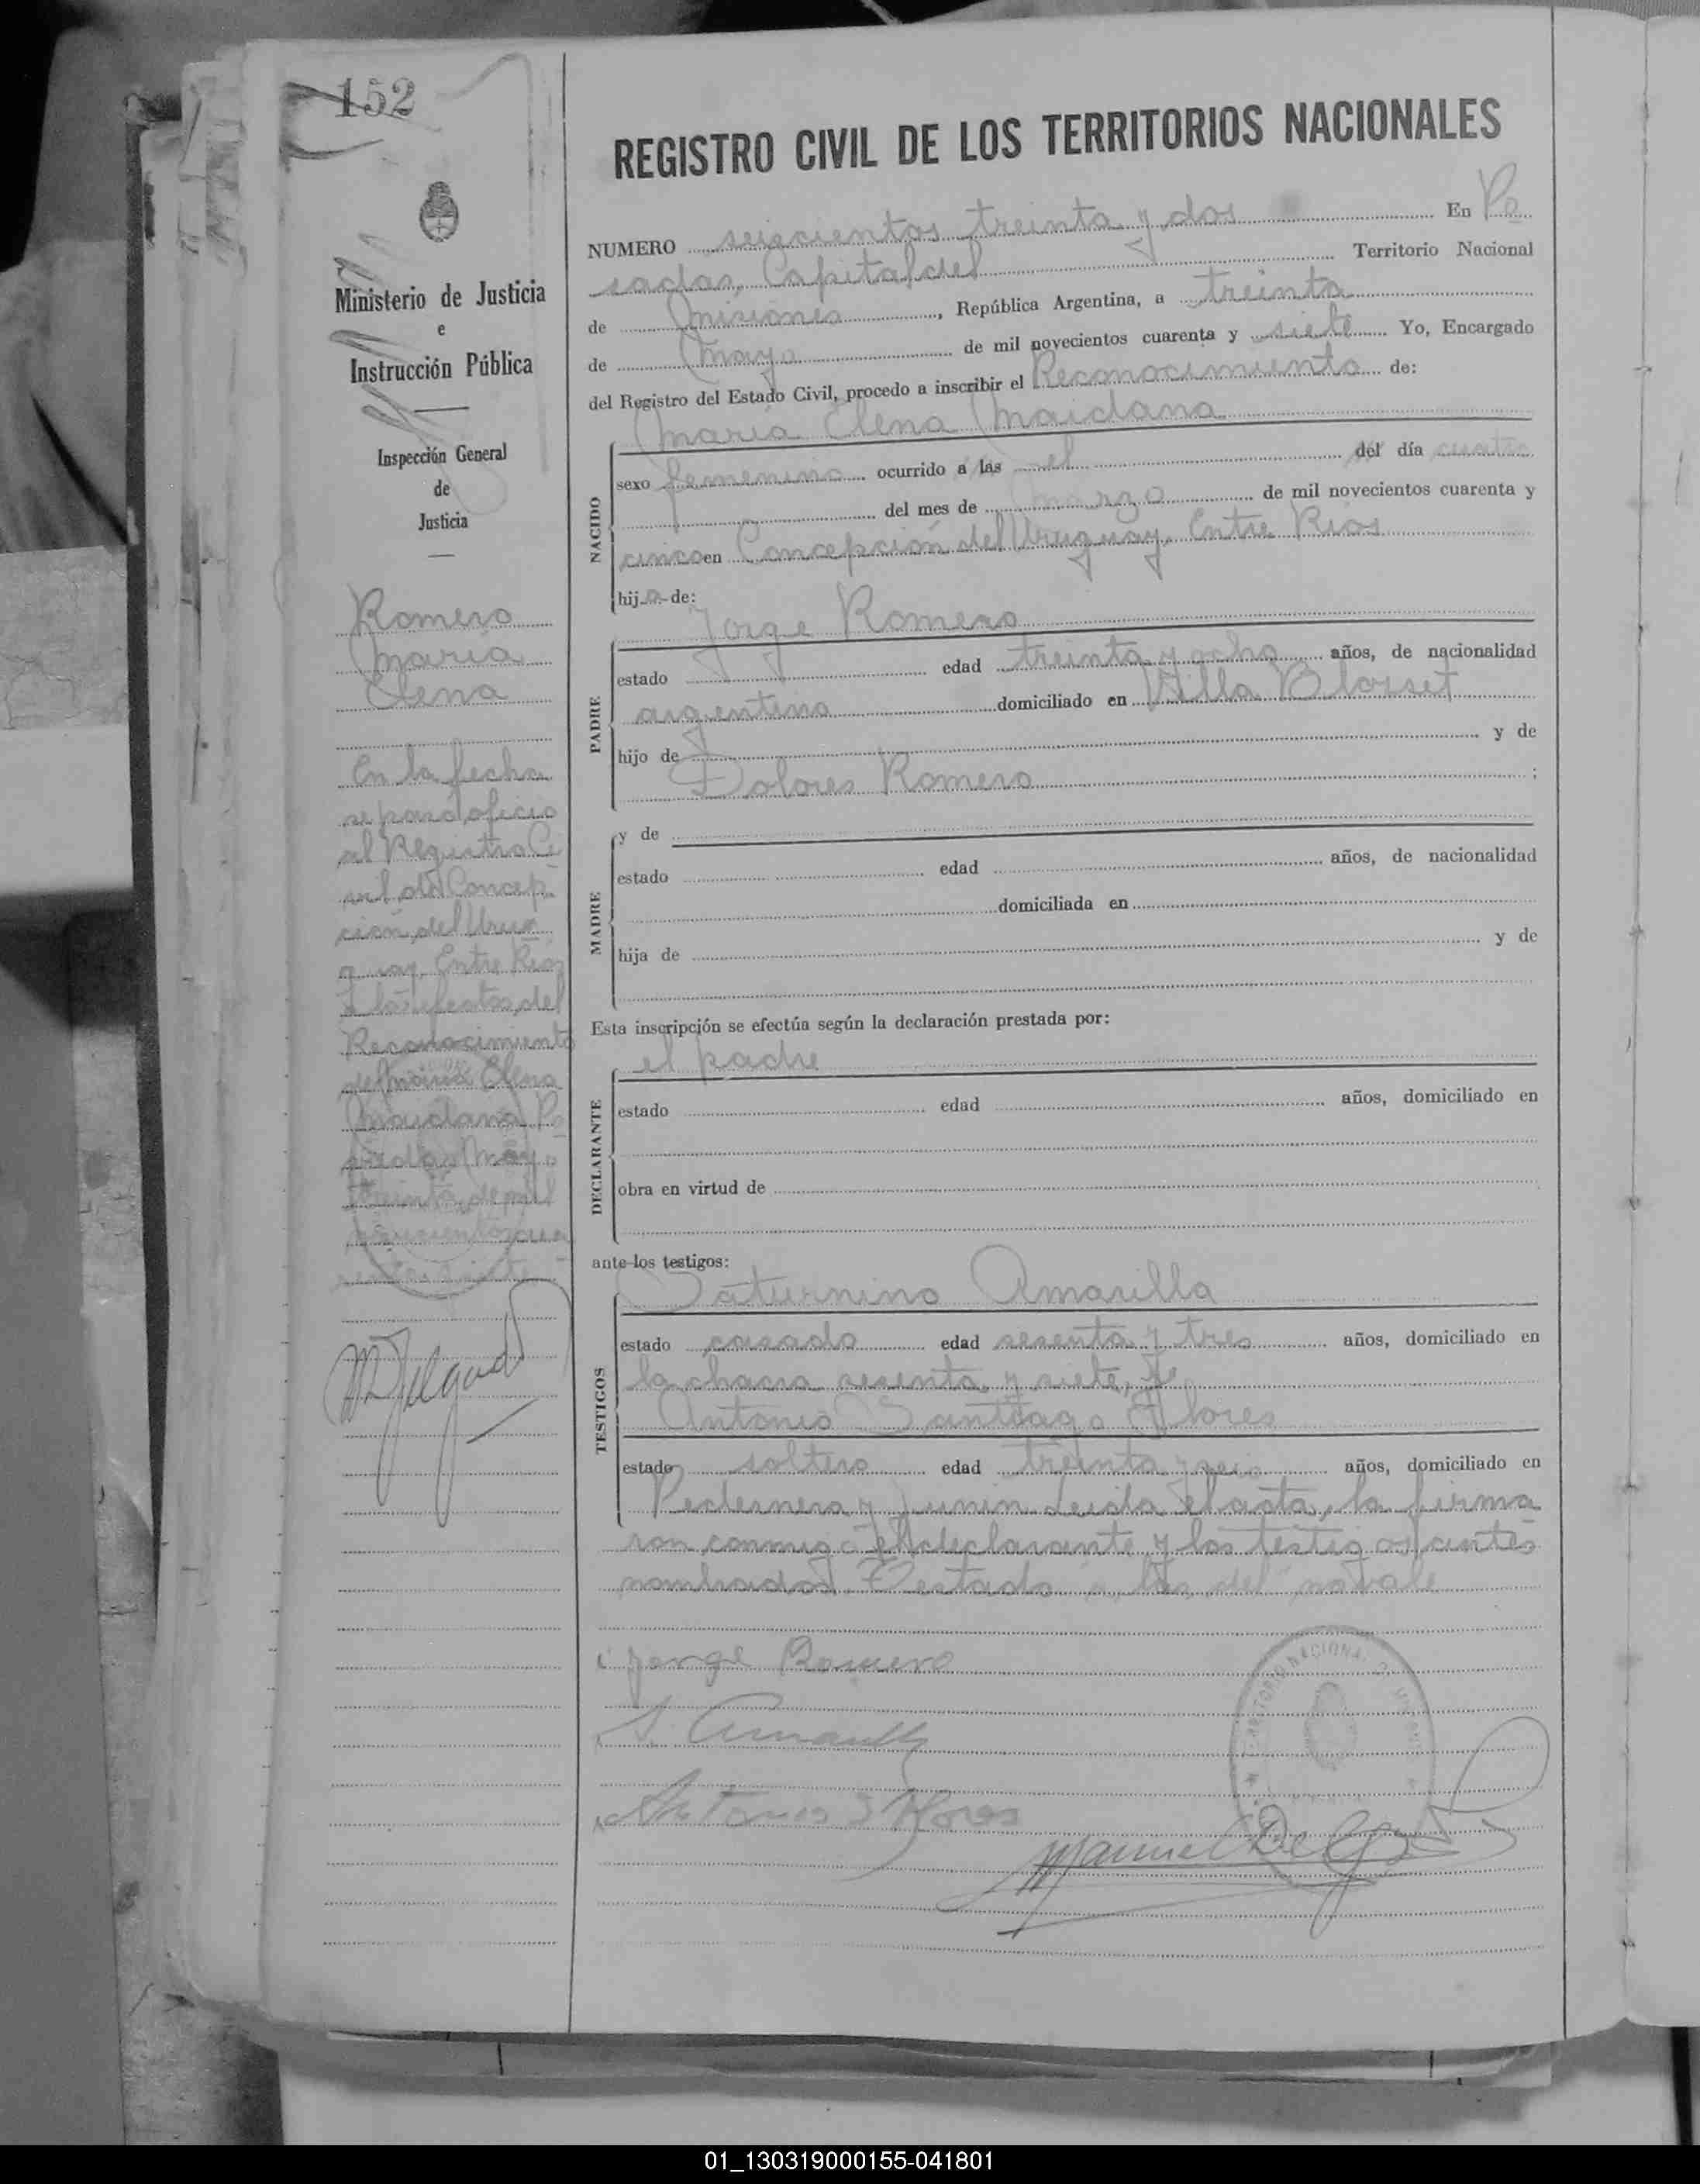 152
Ministerio de Justicia
e
Instrucción Pública
Inspección General
de
Justicia
Romero
María
Elena
En la fecha
se pasó oficio
al Registro Ci
vil de Concep
ción del Uru
guay, Entre Ríos
a los efectos del
Reconocimiento
de María Elena
Maidana. Po
sadas, Mayo
treinta de mil
novecientos cua
renta y siete
M Delgado
REGISTRO CIVIL DE LOS TERRITORIOS NACIONALES
NUMERO seiscientos treinta y dos En Po
sadas, Capital del Territorio Nacional
de Misiones, República Argentina, a treinta
de Mayo de mil novecientos cuarenta y siete Yo, Encargado
del Registro del Estado Civil, procedo a inscribir el Reconocimiento de:
María Elena Maidana
NACIDO
sexo femenino ocurrido a las el del día cuatro
del mes de marzo de mil novecientos cuarenta y
cinco en Concepción del Uruguay, Entre Ríos
hija de:
Jorge Romero
PADRE
estado edad treinta y ocho años, de nacionalidad
argentino domiciliado en Villa Blosset
hijo de y de
Dolores Romero ;
MADRE
y de
estado edad años, de nacionalidad
domiciliada en
hija de y de
Esta inscripción se efectúa según la declaración prestada por:
el padre
DECLARANTE
estado edad años, domiciliado en
obra en virtud de
ante los testigos:
Saturnino Amarilla
TESTIGOS
estado casado edad sesenta y tres años, domiciliado en
la chacra sesenta y siete, y
Antonio Santiago Flores
estado soltero edad treinta y seis años, domiciliado en
Pedernera y Junin. Leída el acta, la firma
ron conmigo el declarante y los testigos antes
nombrados. Testado "a las, del" no vale
Jorge Romero
S. Amarilla
Antonio S Flores
TERRITORIO NACIONAL DE MISIONES
Manuel Delgado
01_130319000155-041801